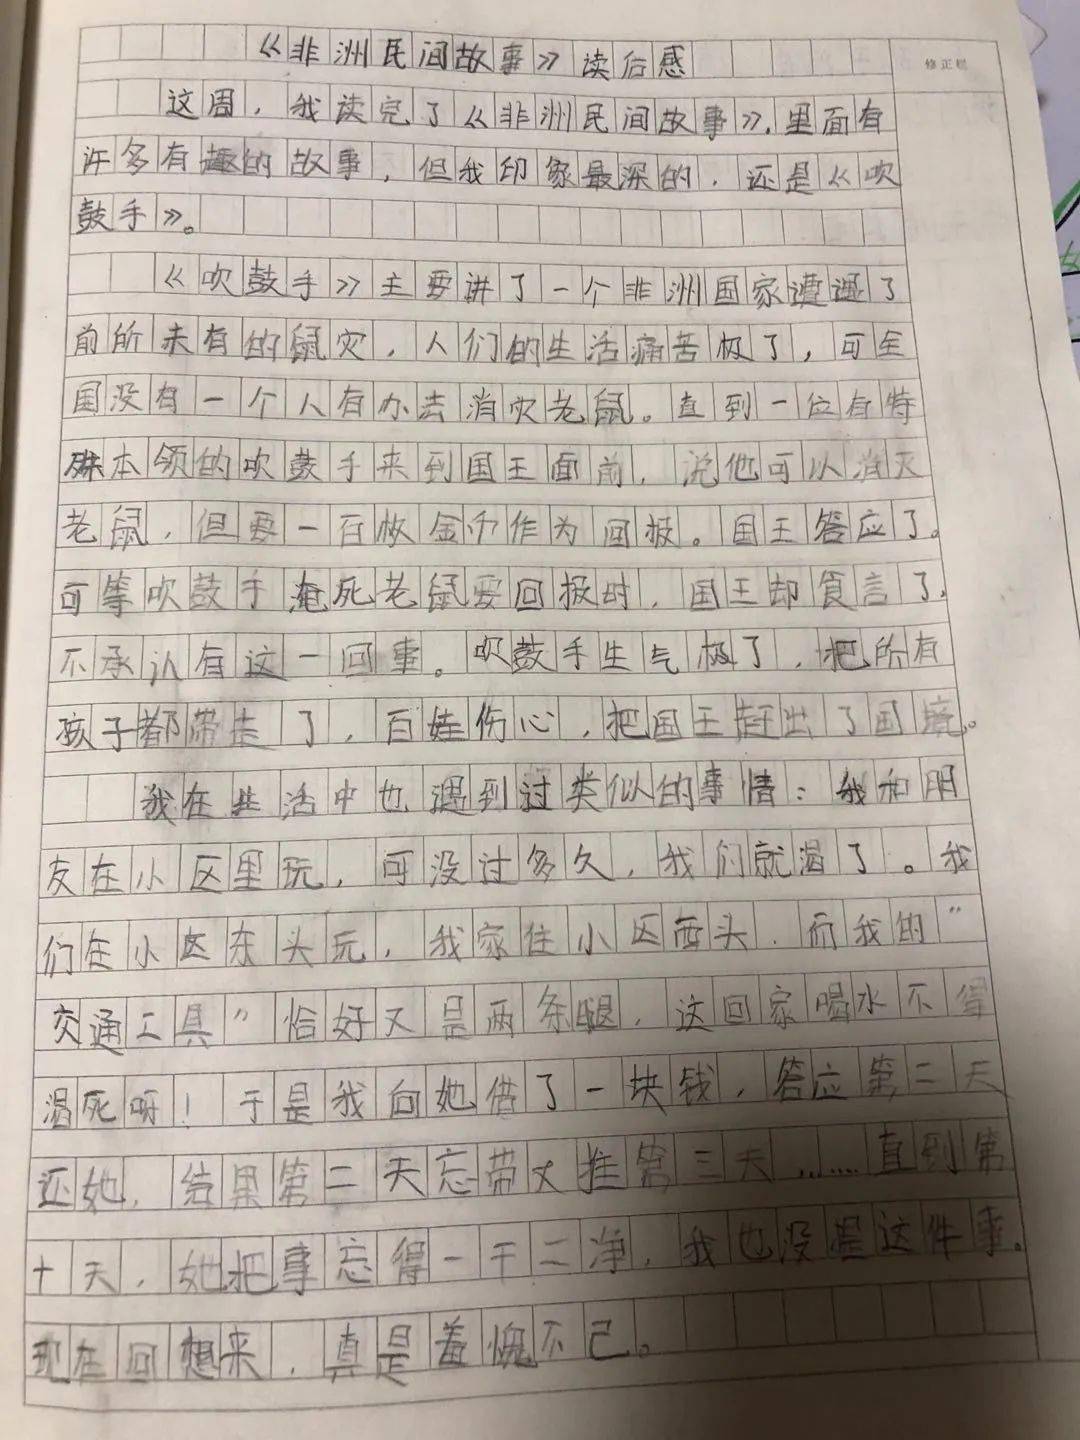 《非洲民间故事》读后感
修正栏
这周，我读完了《非洲民间故事》，里面有
许多有趣的故事，但我印象最深的，还是《吹
鼓手》。
《吹鼓手》主要讲了一个非洲国家遭遇了
前所未有的鼠灾，人们的生活痛苦极了，可全
国没有一个人有办去消灾老鼠。直到一位有特
殊本领的吹鼓手来到国王面前，说他可以消灭
老鼠，但要一百枚金币作为回报。国王答应了。
可等吹鼓手淹死老鼠要回报时，国王却食言了，
不承认有这一回事。吹鼓手生气极了，把所有
孩子都带走了，百姓伤心，把国王赶出了国境。
我在生活中也遇到过类似的事情：我和朋
友在小区里玩，可没过多久，我们就渴了。我
们在小区东头玩，我家住小区西头，而我的"
交通工具"恰好又是两条腿，这回家喝水不得
渴死呀！于是我向她借了一块钱，答应第二天
还她，结果第二天忘带又推第三天……直到第
十天，她把事忘得一干二净，我也没提这件事。
现在回想来，真是羞愧不已。